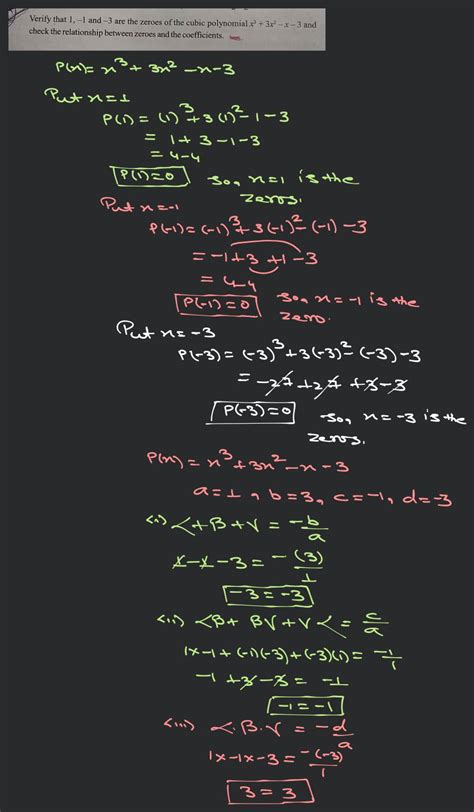 Verify that 1, –1 and –3 are the zeroes of the cubic polynomial x³ + 3x² – x – 3 and
check the relationship between zeroes and the coefficients.
P(x) = x³ + 3x² - x - 3
Put x = 1
P(1) = (1)³ + 3(1)² - 1 - 3
= 1 + 3 - 1 - 3
= 4 - 4
P(1) = 0 So, x = 1 is the
zeros.
Put x = -1
P(-1) = (-1)³ + 3(-1)² - (-1) - 3
= -1 + 3 + 1 - 3
= 4 - 4
P(-1) = 0 So, x = -1 is the
zero.
Put x = -3
P(-3) = (-3)³ + 3(-3)² - (-3) - 3
= -27 + 27 + 3 - 3
P(-3) = 0 So, x = -3 is the
zeros.
P(x) = x³ + 3x² - x - 3
a = 1, b = 3, c = -1, d = -3
(i) α + β + γ = -b/a
1 - 1 - 3 = -(3)/1
-3 = -3
(ii) αβ + βγ + γα = c/a
1x-1 + (-1)(-3) + (-3)(1) = -1/1
-1 + 3 - 3 = -1
-1 = -1
(iii) α.β.γ = -d/a
1x-1x-3 = -(-3)/1
3 = 3